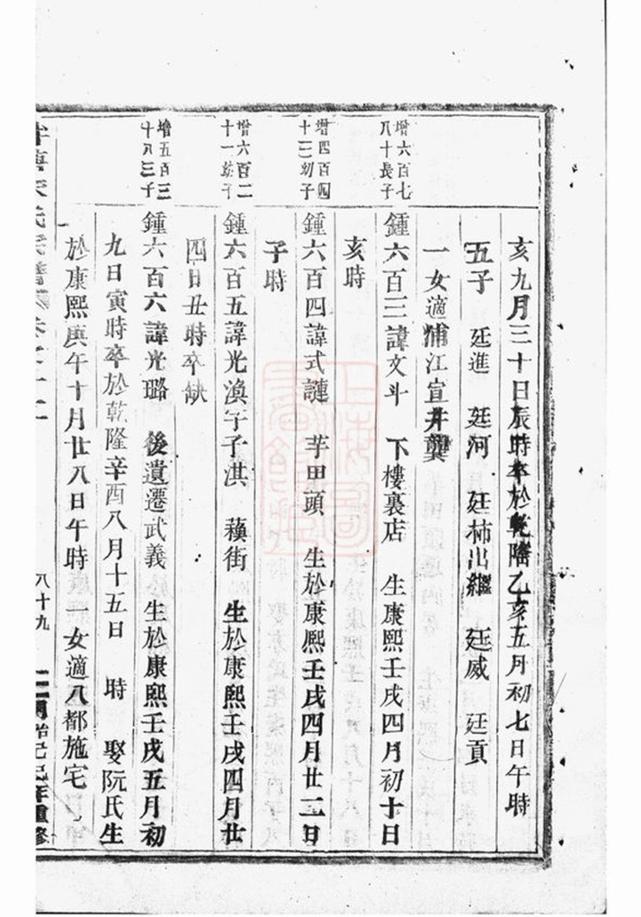 亥九月三十日辰時卒於乾隆乙亥五月初七日午時
五子 廷進 廷河 廷柿出繼 廷威 廷貢
一女適浦江宣井龔
增六百七
八十長子
鍾六百三諱文斗 下樓裏店 生康熙壬戌四月初十日
亥時
增四百四
十三初子
鍾六百四諱式謰 芋田頭 生於康熙壬戌四月廿二日
子時
增六百二
十一幼子
鍾六百五諱光渙字子淇 蘋街 生於康熙壬戌四月廿
四日丑時卒缺
增五百三
十八三子
鍾六百六諱光璐 後遺遷武義 生於康熙壬戌五月初
九日寅時卒於乾隆辛酉八月十五日 時 娶阮氏生
於康熙庚午十月廿八日午時 一女適八都施宅
八十九
年重修